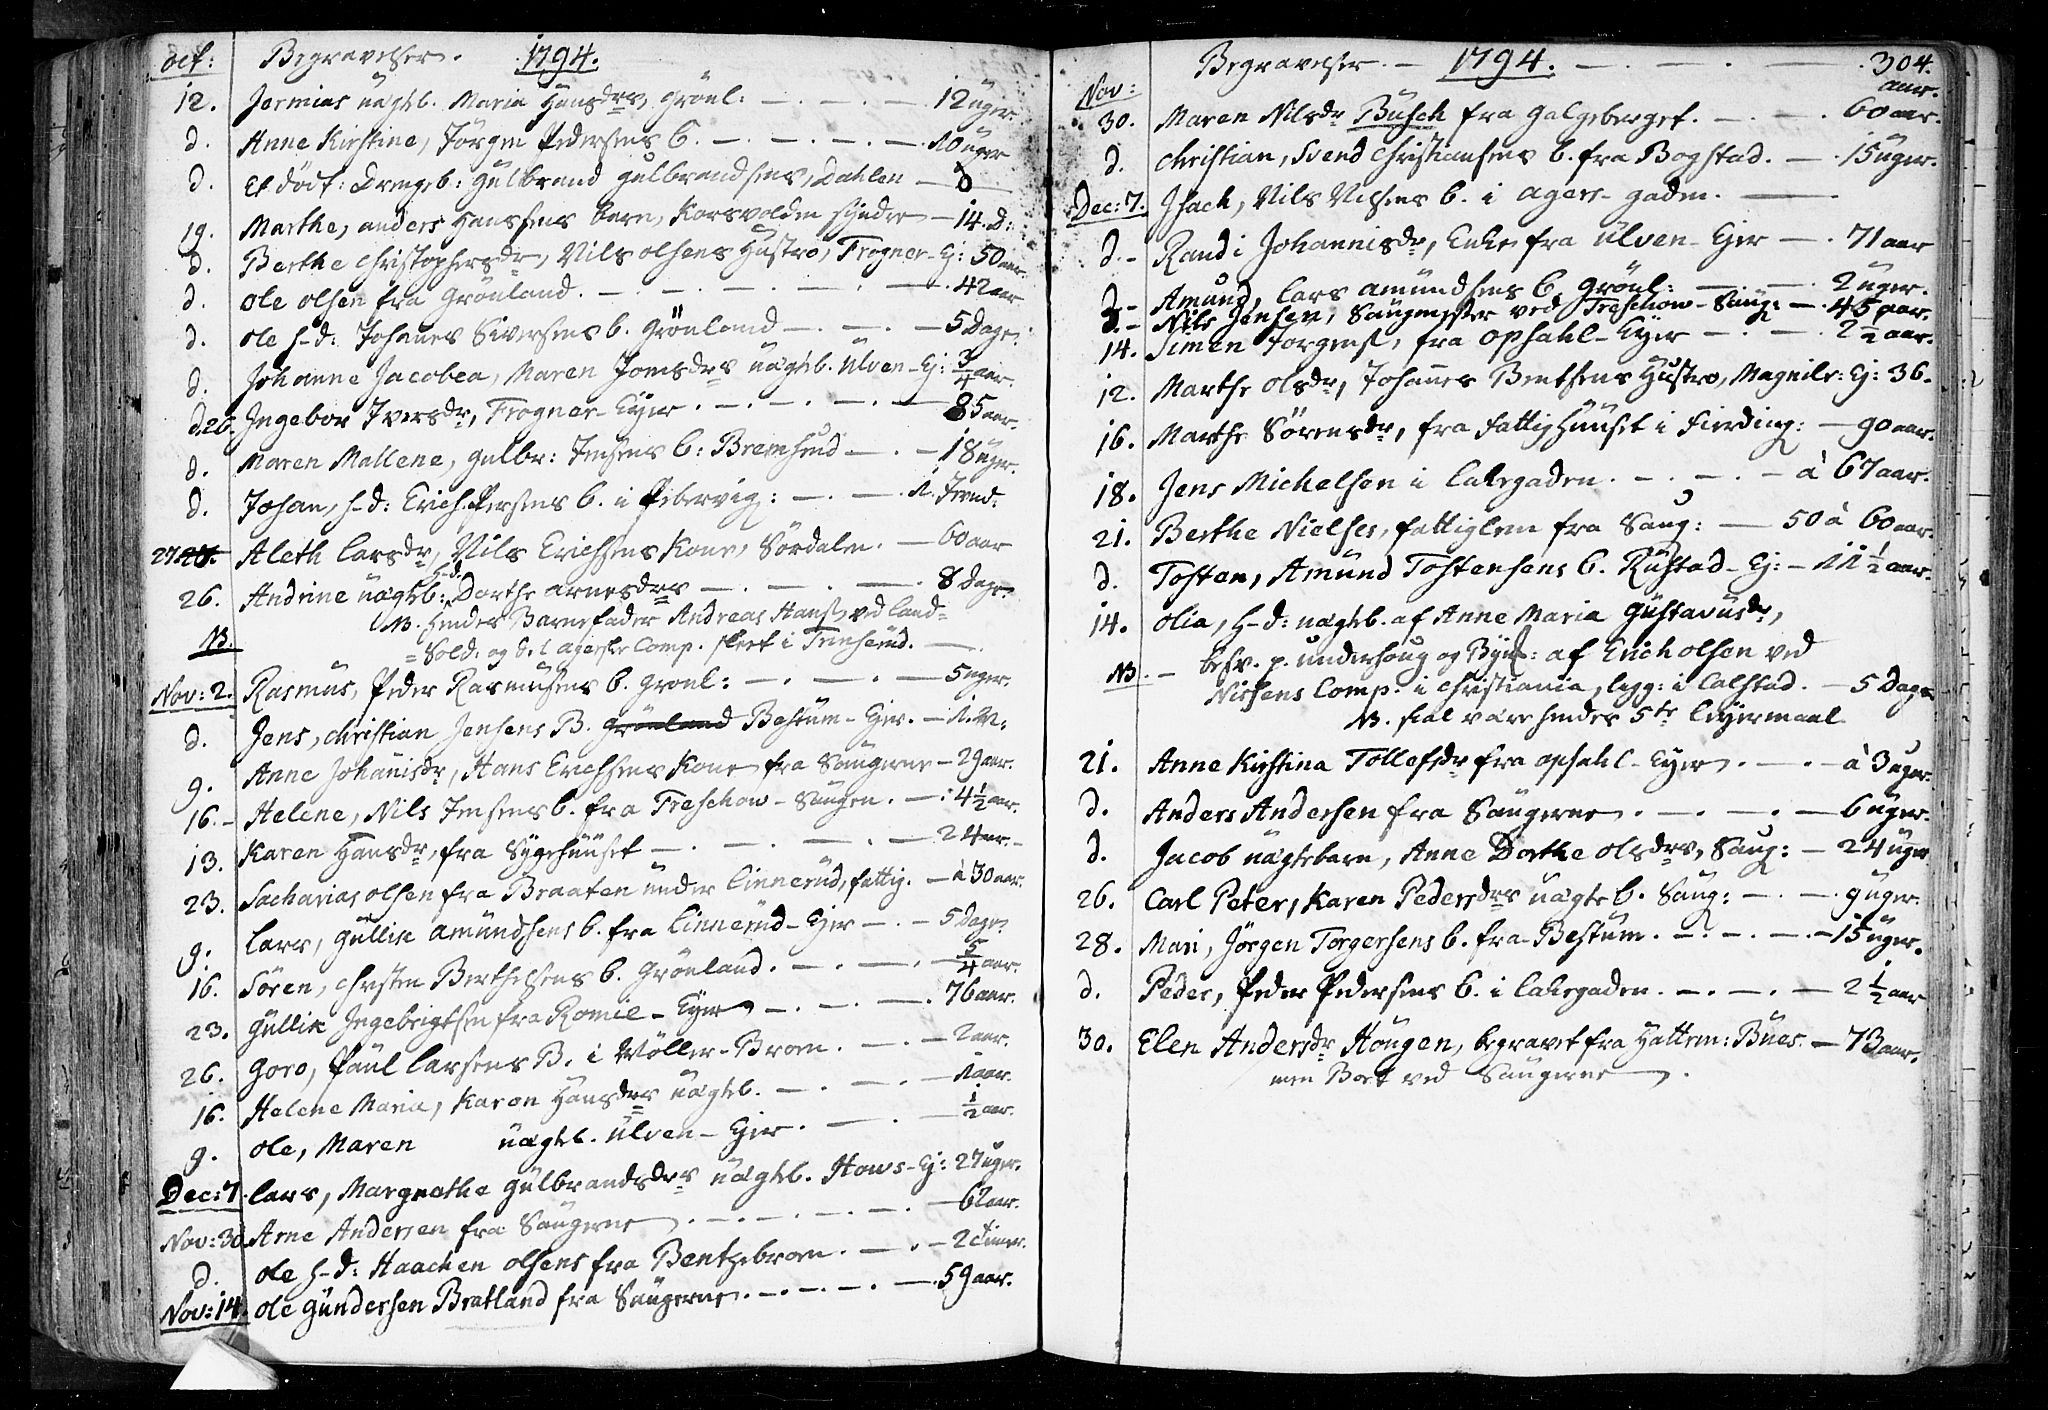 Oct: Begravelser. 1794.
12. Jermias uægtb. Maria Hansdrs, Grönl: — 12 uger.
d. Anne Kirstine, Jörgen Pedersens b. — 10 uger
d. Et dödf: Drengeb: Gulbrand Gulbrandsens, Dahlen — 0
19. Marthe, Anders Hanssens barn, Korsvolden syndre — 14. D:
d. Berthe Christophersdr, Nils Olsens Hustro, Frogner-Ej: 50 aar.
d. Ole Olsen fra Grönland. — 42 aar
d. Ole h-d: Johanes Siversens b. Grönland — 5 Dage.
d. Johanne Jacobea, Maren Jonsdrs uægtb. Ulven-Ej: 3/4 aar.
d. 26. Ingebor Iversdr, Frogner-Ejer. — 85 aar.
d. Maren Mallene, Gulbr: Jensens b: Bremsrud — 18 uger.
d. Johan, h-d: Erich Persens b. i Pibervig: — 1. Time
27. Aleth Larsdr, Nils Erichsens Kone, Sördalen. — 60 aar
26. Andrine uægtb: h-d. Dorthe Arnesdrs — 8 Dage
NB. NB. Hendes Barnefader Andreas Hans: ved Land-
=Sold. og d. 1 Agerske Comp. skeet i Trinserud. —
Nov: 2. Rasmus, Peder Rasmusens b. Grönl: — 5 uger.
d. Jens, Christian Jensens B. Grönland Bestum-Ejer. — 1. M:
9. Anne Johanisdr, Hans Erichsens Kone fra Saugerne — 29 aar.
16. Helene, Nils Jensens b. fra Treschow-Saugen. — 4 1/2 aar.
13. Karen Hansdr, fra Sygehuuset — 24 aar.
23. Sacharias Olsen fra Braaten under Linnerud, fattig. — à 30 aar.
9. Lars, Gullik Amundsens b. fra Linnerud-Ejer — 5 Dage
16. Sören, Chrsten Berthelsens b. Grönland. — 5/4 aar.
23. Gullik Ingebrigtsen fra Romil-Eyer — 76 aar.
26. Goro, Paul Larsens B. i Wöller-Broen. — 2 aar.
16. Helene Maria, Karen Hansdrs uægtb. — 1 aar.
9. Ole, Maren uægtb. Ulven-Ejer. — 1/2 aar.
Dec: 7. Lars, Margrethe Gulbrandsdrs uægtb. Hows-Ej: 27 uger.
Nov: 30. Arne Andersen fra Saugerne — 62 aar.
d. Ole h-d: Haachen Olsens fra Bentsebroen. — 2 timer.
Nov: 14. Ole Gundersen Bratland fra Saugerne. — 59 aar.
Begravelser. — 1794. — 304.
Nov: aar.
30. Maren Nilsdr Busch fra Galgeberget. — 60 aar.
d. Christian, Svend Christiansens b. fra Bogstad. — 15 uger.
Dec: 7. Isach, Nils Nilsens b. i Agers-gaden. —
d. Randi Johannisdr, Enke fra Ulven-Ejer — 71 aar
d. Amund, Lars Amundsens b. Grönl: — 2 uger.
d. Nils Jensen, Saugmester ved Treschow-Saug: — 45 aar.
14. Simen Jorgens:, fra Opsahl-Eyer — 2 1/2 aar.
12. Marthe Olsdr, Johanes Bentsens Hustro, Magnilr: Ej: 36.
16. Marthe Sörensdr, fra Fattighuuset i Fierding: — 90 aar.
18. Jens Michelsen i Lakegaden. — à 67 aar.
21. Berthe Nielses, fattiglem fra Saug: — 50 à 60 aar.
d. Tosten, Amund Tostensens b. Rustad-Ej: — 11 1/2 aar.
14. Olia, h-d: uægtb. af Anne Maria Gustavusdr,
NB. — besv. p. undersoug og Bynf: af Erich Olsen ved
Nilsens Comp. i Christiania, ligg: i Calstad. — 5 Dage
NB. skal være hendes 5te Leyermaal
21. Anne Kirstina Tollefsdr fra Opsahl-Eyer. — à 3 uger.
d. Anders Andersen fra Saugerne. — 6 uger.
d. Jacob uægtebarn, Anne Dorthe Olsdrs, Saug: — 24 uger
26. Carl Peter, Karen Pedersdrs uægte b. Saug: — 9 uger.
28. Mari, Jörgen Torgersens b. fra Bestum. — 15 uger.
d. Peder, Peder Pedersens b. i Lakegaden. — 2 1/2 aar
30. Elen Andersdr Hougen, begravet fra Hattem: Bues. — 73 aar.
men Boet ved Saugerne.